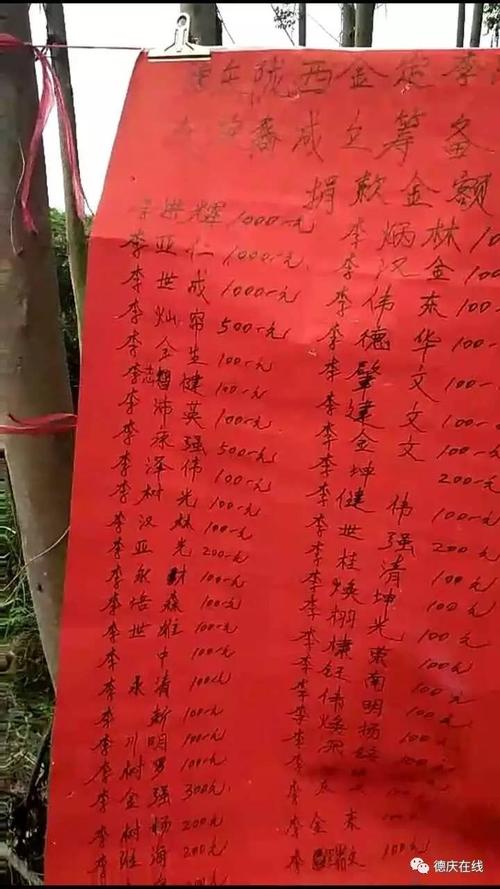 陇西金定李
成立筹备
捐款金额
李世辉1000元
李亚仁1000元
李世成1000元
李灿帮500元
李金芝100元
李志健100元
李沛英100元
李永强500元
李泽伟100元
李树光100元
李汉林100元
李亚光200元
李永财100元
李培森100元
李世雄100元
李中100元
李永清100元
李新100元
李川明100元
李树罗100元
李金强300元
李树杨200元
李胜海200元
李炳林10
李汉金100
李伟东100
李德华100
李肇文100
李建文100
李金文100
李坤200元
李健伟100元
李世强200元
李桂清100元
李焕坤100元
李栩光100元
李棣东100元
李钰南100元
李伟明100元
李焕杨100元
李金东
李文100元
德庆在线